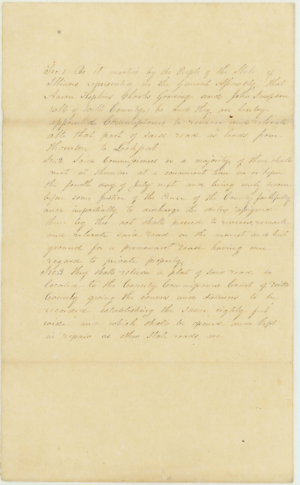 Sec 1 Be it enacted by the People of the State of
Illinois represented in the General Assembly, that
Aaron Hopkins Charles Goering and John Simpson
all of Will County, be and they are hereby
appointed Commissioners to review and relocate
all that part of said road as leads from
Thornton to Lockport
Sec 2 Said Commissioners or a majority of them shall
meet at Thornton at a convenient time on or before
the fourth day of July next and being duly sworn
before some Justice of the Peace of the County faithfully
and impartially to discharge the duties required
them by this act shall proceed to
and relocate said road on the nearest and best
ground for a permanent road having due
regard to private property
Sec 3 They shall return a plat of said road so
to the County Commissioners Court of Will
County, giving the courses and distances to be
recorded establishing the same eighty feet
wide and which shall be opened and kept
in repair as other State roads are